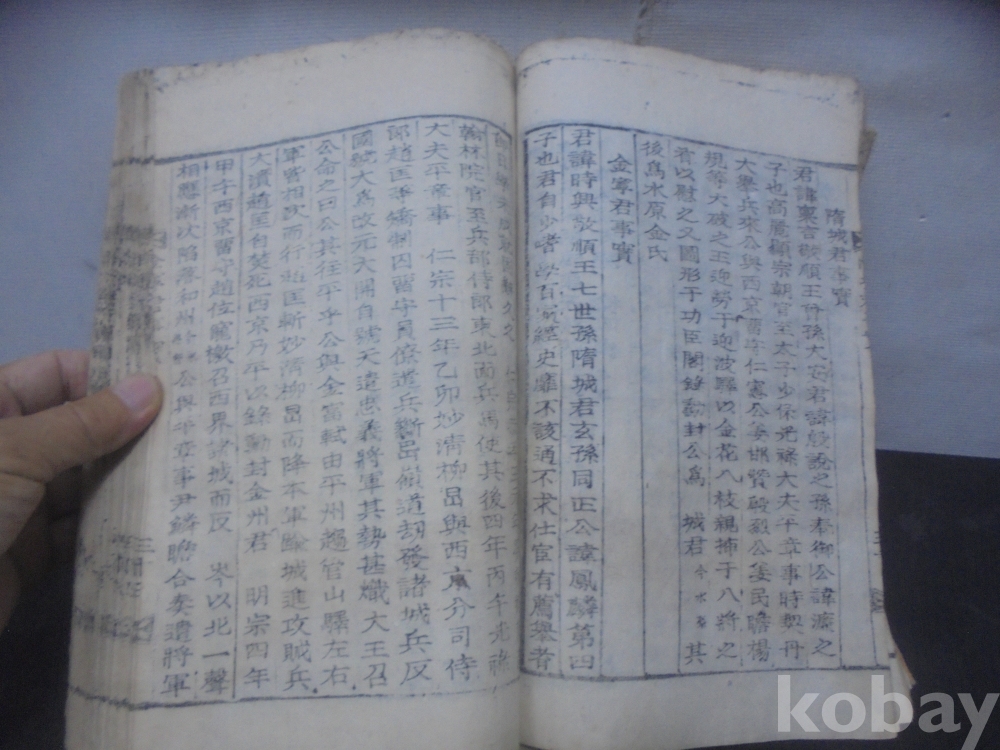 隋城君事實
君諱
敬順王
孫大安君諱殷說之孫泰御公諱濂之
子也高麗顯宗朝官至太子少保光祿大夫平章事時契丹
大擧兵來公與西京留守仁憲公姜邯贊殷烈公姜民瞻楊
規等大破之王迎勞于迎波驛以金花八枝親揷于八將之
有以慰之又圖形于功臣閣錄勳封公爲
城君
今水原
其
後爲水原金氏
金寧君事實
君諱時興敬順王七世孫隋城君玄孫同正公諱鳳麟第四
子也君自少耆學百家經史靡不該通不求仕宦有薦擧者
翰林院官至兵部侍郞東北面兵馬使其後四年丙午光祿
大夫平章事 仁宗十三年乙卯妙淸柳旵與西京分司侍
郞趙匡等矯制囚留守員僚遣兵斷岊嶺道劫發諸城兵反
國號大爲改元天開自號天遣忠義將軍其勢甚熾大王召
公命之曰公其往平乎公與金富軾由平州趨官山驛左右
軍皆相次而行趙匡斬妙淸柳旵而降本軍踰城進攻賊兵
大潰趙匡自焚死西京乃平以錄勳封金州君 明宗四年
甲午西京留守趙位寵檄召西界諸城而反 岑以北一聲
相應漸次陷落和州
公與平章事尹鱗瞻合奏遣將軍
kobay